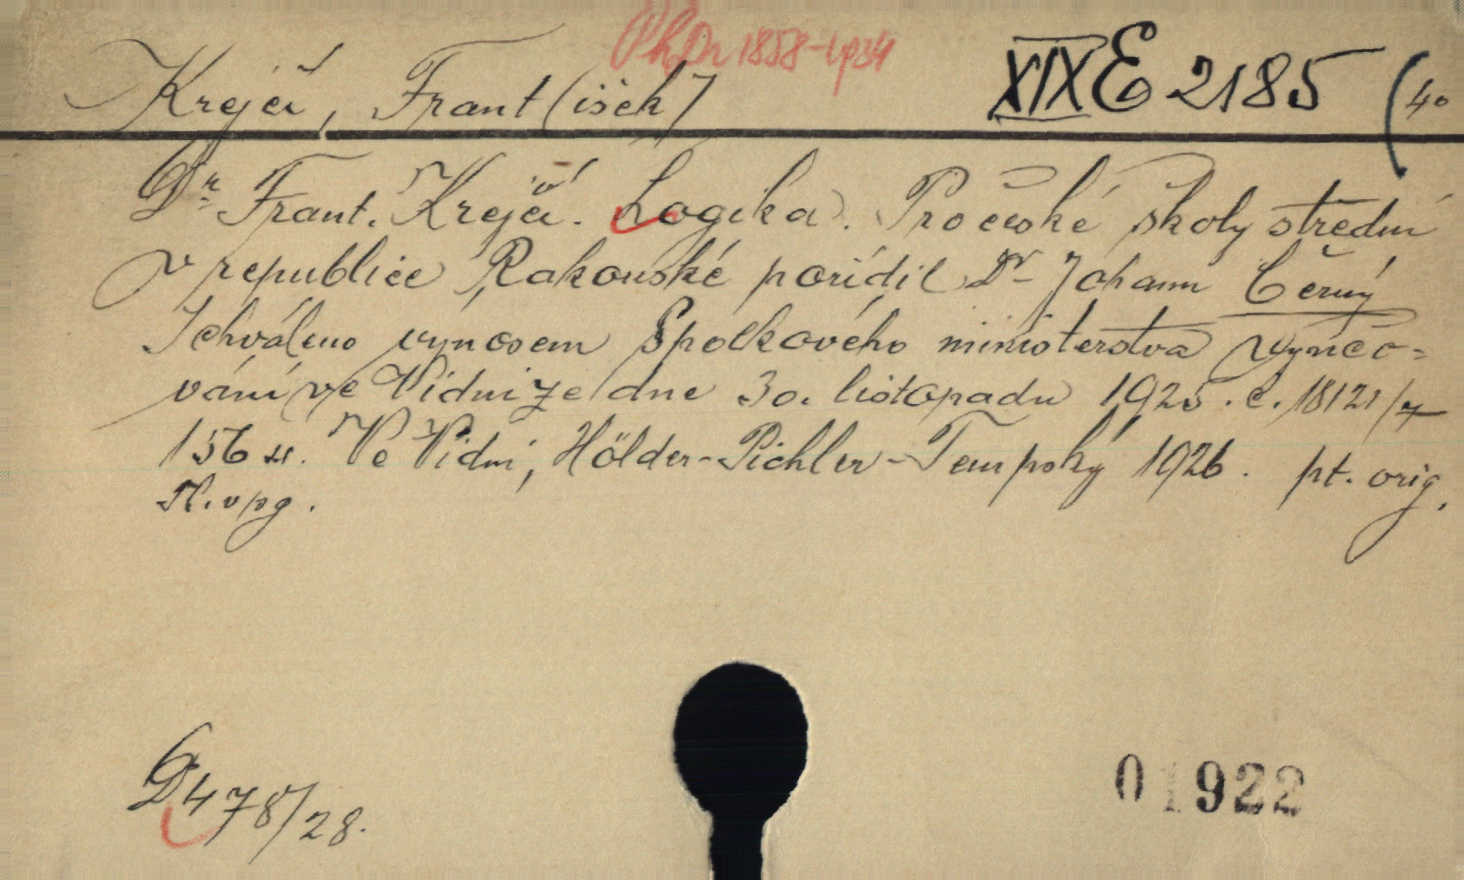 PhDr 1858-1934
Krejčí, Frant(išek) XIX E 2185 (40
Dr. Frant. Krejčí. Logika. Pro české školy střední
v republice Rakouské pořídil Dr. Johann Černý
Schváleno výnosem Spolkového ministerstva vyučo-
vání ve Vídni ze dne 30. listopadu 1925. č. 18121/7
156 s. Ve Vídni, Hölder-Pichler-Tempský 1926. pt. orig.
Pl. vpg.
D 478/28.
01922